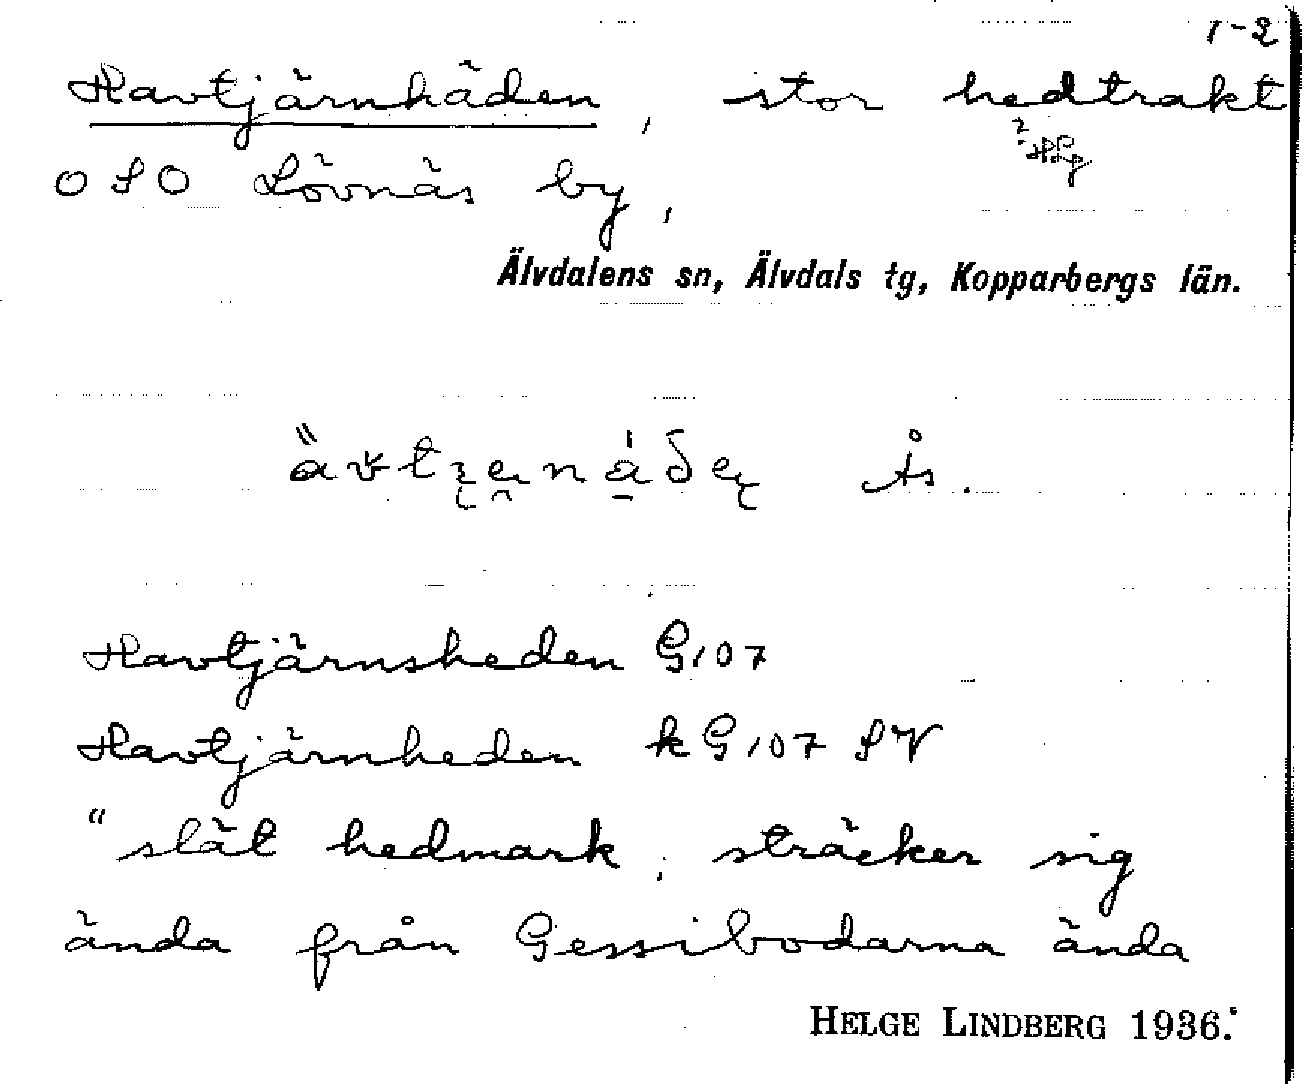 1-2
Havtjärnhäden, stor hedtrakt
OSO Lövnäs by,
Älvdalens sn, Älvdals tg, Kopparbergs län.
Ås.
Havtjärnsheden G107
Havtjärnheden kG107 SV
"slät hedmark; sträcker sig
ända från Gessibodarna ända
HELGE LINDBERG 1936.